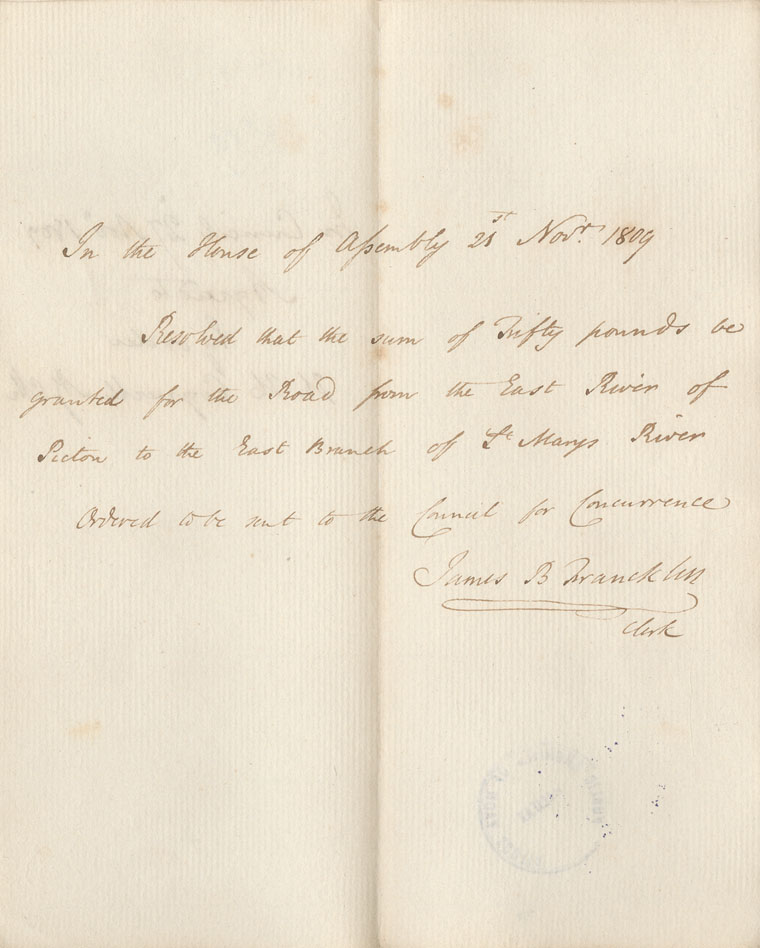 In the House of Assembly 21st Novr. 1809
Resolved that the sum of Fifty pounds be
granted for the Road from the East River of
Picton to the East Branch of St Marys River
Ordered to be sent to the Council for Concurrence
James B Francklin
Clerk